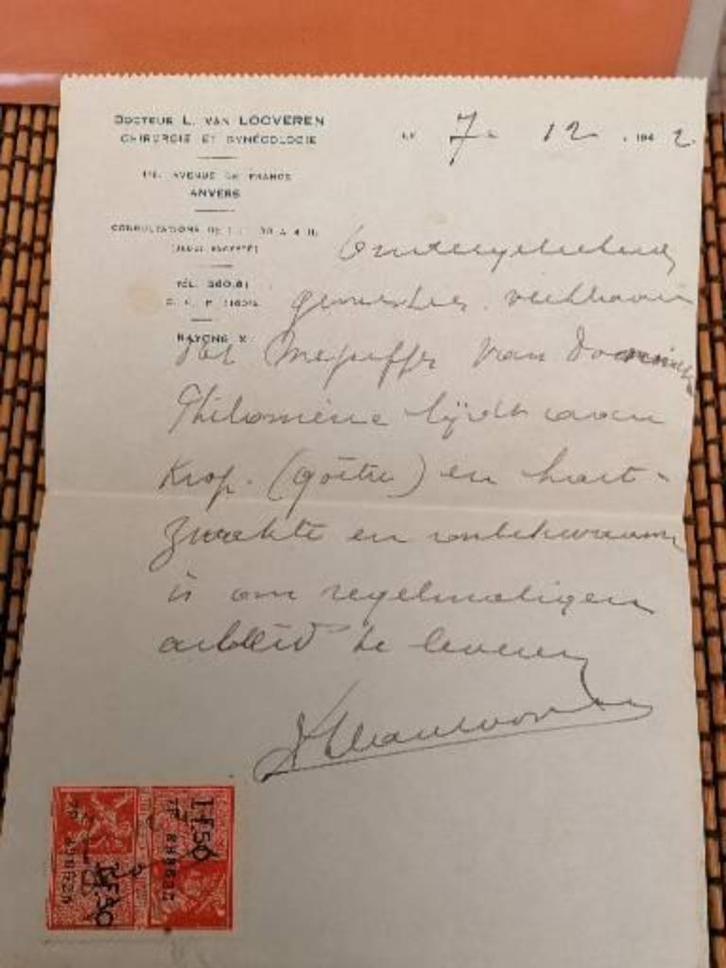 DOCTEUR L. VAN LOOVEREN
CHIRURGIE ET GYNÉCOLOGIE
LE 7 - 12 . 194 2
AVENUE DE FRANCE
ANVERS
CONSULTATIONS DE
(JEUDI EXCEPTÉ)
TÉL.
RAYONS X
Ondergeteekende
geneesheer verklaart
dat Mejuffr Van
Philomène lijdt aan
Krop. (goître) en hart-
zwakte en onbekwaam
is om regelmatigen
arbeid te leveren
1F50
1F50